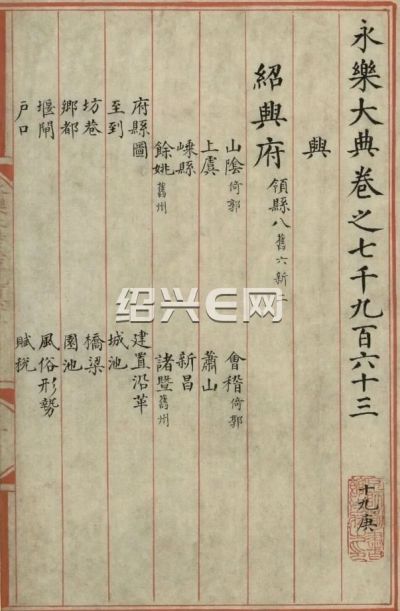 永樂大典卷之七千九百六十三
十九庚
興
紹興府 領縣八 舊六新二
山陰 倚郭 會稽 倚郭
上虞 蕭山
嵊縣 新昌
餘姚 舊州 諸暨 舊州
府縣圖 建置沿革
至到 城池
坊巷 橋梁
鄉都 園池
堰閘 風俗形勢
戶口 賦稅
绍兴E网